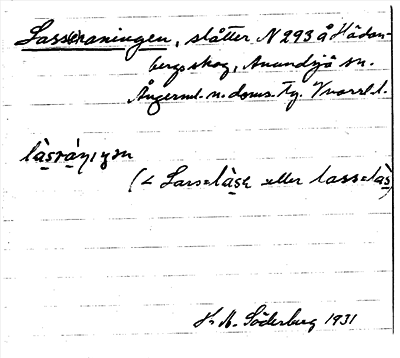 Lassraningen, slåtter N 293 å Hädan-
bergs skog, Anundsjö sn.
Ångerml. n. doms. tg.
làsráṇıŋən
(< Lars = làsɛ eller lass = làs)
H. A. Söderberg 1931